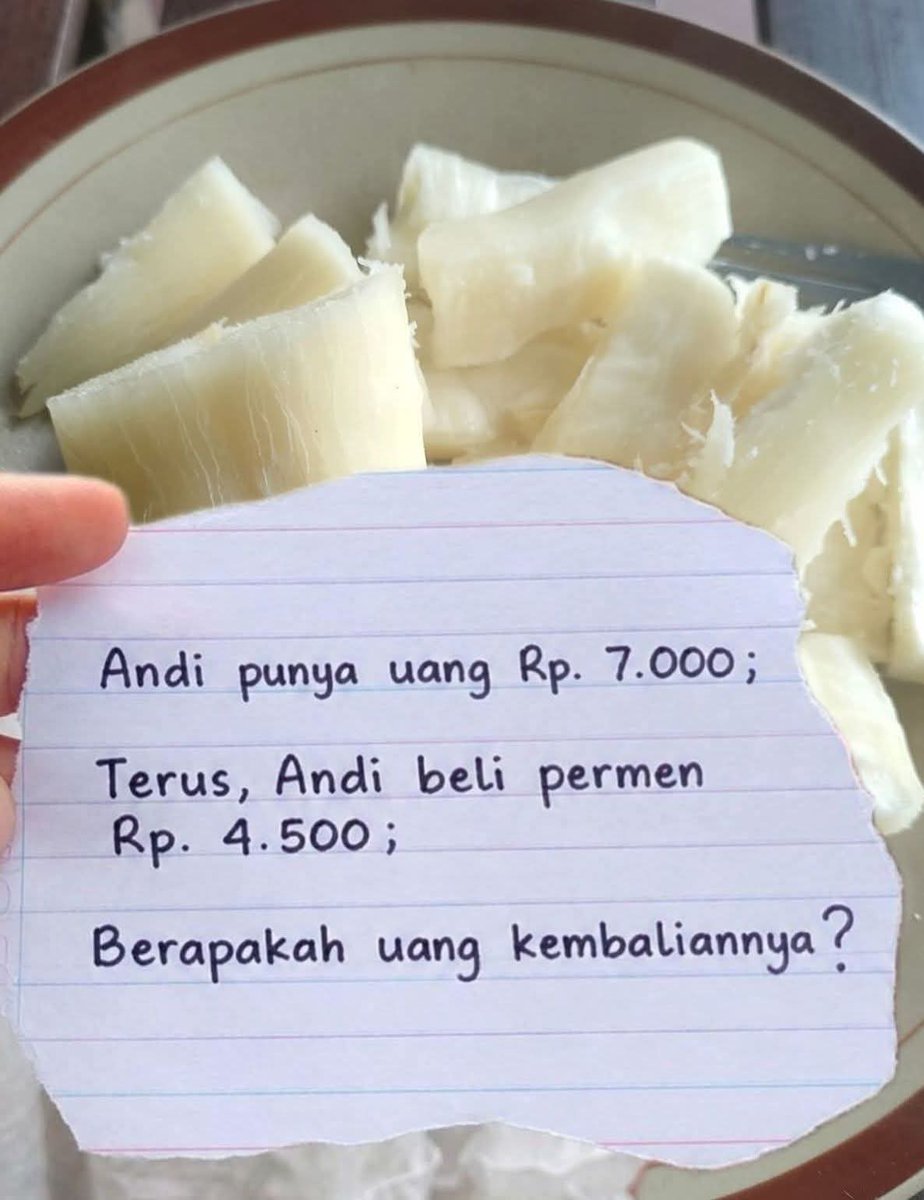 Andi punya uang Rp. 7.000;
Terus, Andi beli permen
Rp. 4.500;
Berapakah uang kembaliannya?